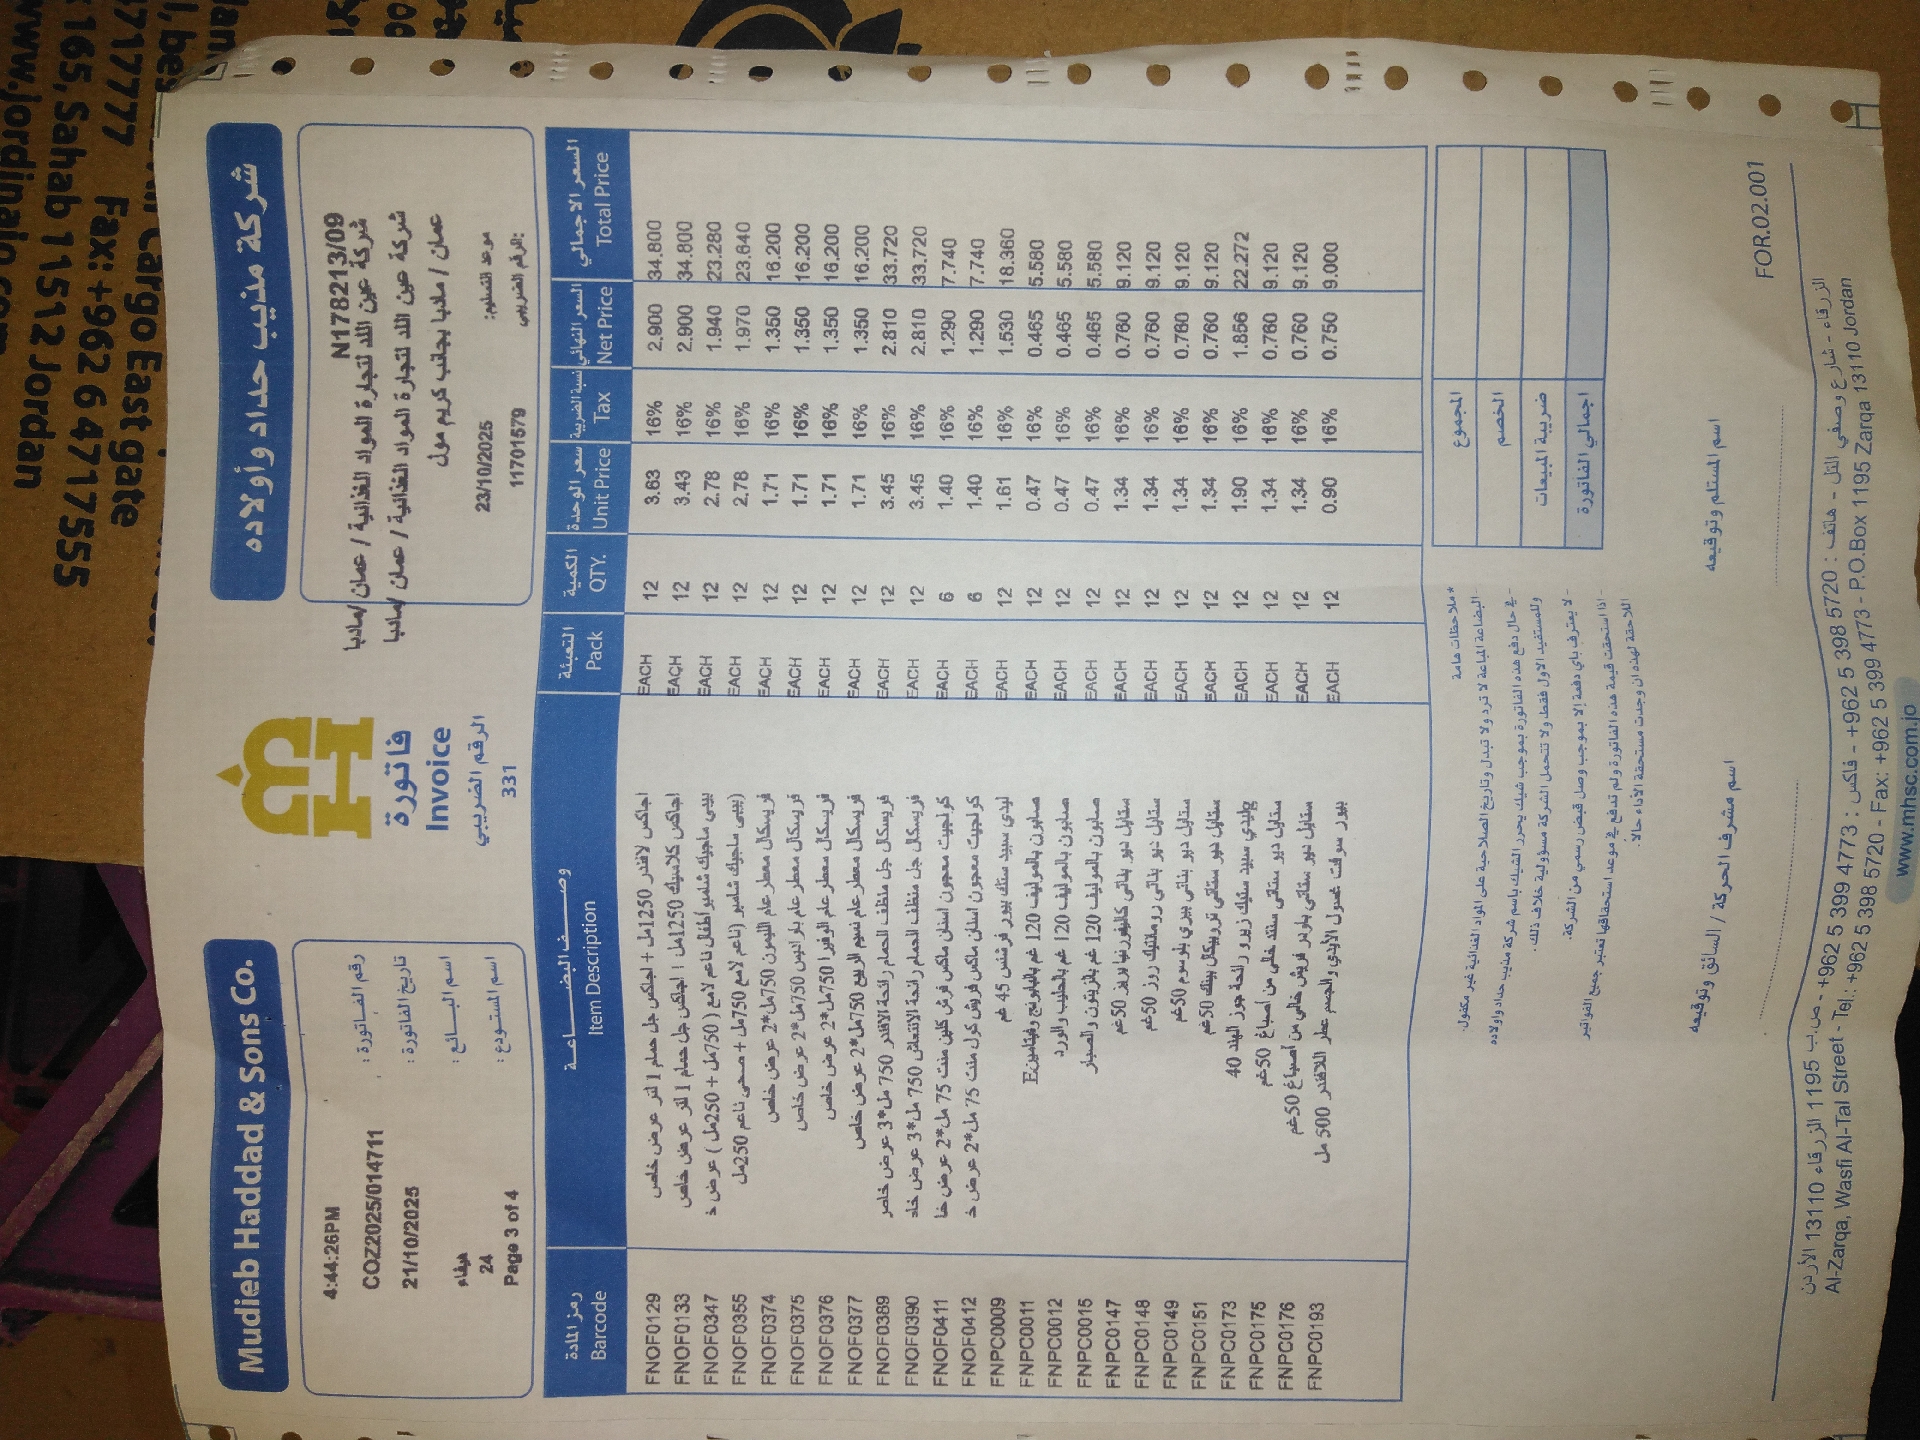 Mudieb Haddad & Sons Co.
شركة مذيب حداد وأولاده
فاتورة
Invoice
الرقم الضريبي
331
4:44:26PM
رقم الفاتورة : COZ2025/014711
تاريخ الفاتورة : 21/10/2025
اسم البائع : هيفاء
اسم المستودع : 24
Page 3 of 4
N178213/09
شركة عين اللد لتجارة المواد الغذائية / عمان /مادبا
شركة عين اللد لتجارة المواد الغذائية / عمان /مادبا
عمان / مادبا بجانب كريم مول
موعد التسليم: 23/10/2025
الرقم الضريبي: 11701579
رمز المادة وصف البضاعة التعبئة الكمية سعر الوحدة نسبة الضريبة السعر النهائي السعر الاجمالي
Barcode Item Description Pack QTY. Unit Price Tax Net Price Total Price
FNOF0129 اجاكس لافندر 1250مل + اجاكس جل حمام 1 لتر عرض خاص EACH 12 3.63 16% 2.900 34.800
FNOF0133 اجاكس كلاسيك 1250مل ا اجاكس جل حمام 1 لتر عرض خاص EACH 12 3.43 16% 2.900 34.800
FNOF0347 بيبي ماجيك شامبو أطفال ناعم لامع ( 750مل + 250مل ) عرض خ EACH 12 2.78 16% 1.940 23.280
FNOF0355 (بيبي ماجيك شامبو (ناعم لامع 750مل + صحي ناعم 250مل EACH 12 2.78 16% 1.970 23.640
FNOF0374 فريسكال معطر عام الليمون 750مل*2 عرض خاص EACH 12 1.71 16% 1.350 16.200
FNOF0375 فريسكال معطر عام بارايس 750مل*2 عرض خاص EACH 12 1.71 16% 1.350 16.200
FNOF0376 فريسكال معطر عام الوفيرا 750مل*2 عرض خاص EACH 12 1.71 16% 1.350 16.200
FNOF0377 فريسكال معطر عام نسيم الربيع 750مل*2 عرض خاص EACH 12 1.71 16% 1.350 16.200
FNOF0389 فريسكال جل منظف الحمام رائحة الافندر 750 مل*3 عرض خاصر EACH 12 3.45 16% 2.810 33.720
FNOF0390 فريسكال جل منظف الحمام رائحة الانتعاش 750 مل*3 عرض خاد EACH 12 3.45 16% 2.810 33.720
FNOF0411 كولجيت معجون اسنان ماكس فرش كلين منت 75 مل*2 عرض خا EACH 6 1.40 16% 1.290 7.740
FNOF0412 كولجيت معجون اسنان ماكس فريش كول منت 75 مل*2 عرض خ EACH 6 1.40 16% 1.290 7.740
FNPC0009 ليدي سبيد ستك بيور فرشنس 45 غم EACH 12 1.61 16% 1.530 18.360
FNPC0011 صابون بالموليف 120 غم بالبابونج وفيتامينE EACH 12 0.47 16% 0.465 5.580
FNPC0012 صابون بالموليف 120 غم بالحليب والورد EACH 12 0.47 16% 0.465 5.580
FNPC0015 صابون بالموليف 120 غم بالزيتون والصبار EACH 12 0.47 16% 0.465 5.580
FNPC0147 ستايل ديو بناتي كاليفورنيا بريز 50غم EACH 12 1.34 16% 0.760 9.120
FNPC0148 ستايل ديو بناتي رومانتيك روز 50غم EACH 12 1.34 16% 0.760 9.120
FNPC0149 ستايل ديو بناتي بيري بلوسوم 50غم EACH 12 1.34 16% 0.760 9.120
FNPC0151 ستايل ديو ستاتي تروبيكال بينك 50غم EACH 12 1.34 16% 0.760 9.120
FNPC0173 وليدي سبيد ستيك زيرو رائحة جوز الهند 40 EACH 12 1.90 16% 1.856 22.272
FNPC0175 ستايل ديو ستاتي سنتد خالي من أصباغ 50غم EACH 12 1.34 16% 0.760 9.120
FNPC0176 ستايل ديو ستاتي باودر فريش خالي من أصباغ 50غم EACH 12 1.34 16% 0.760 9.120
FNPC0193 بيور سوفت غسول الأيدي والجسم عطر اللافندر 500 مل EACH 12 0.90 16% 0.750 9.000
المجموع
الخصم
ضريبة المبيعات
اجمالي الفاتورة
*ملاحظات هامة
- البضاعة المباعة لا ترد ولا تبدل وتاريخ الصلاحية على المواد الغذائية غير مكفول.
- في حال دفع هذه الفاتورة بموجب شيك يحرر الشيك باسم شركة مذيب حداد واولاده
وللمستفيد الاول فقط ولا تتحمل الشركة مسؤولية خلاف ذلك.
- لا يعترف باي دفعة إلا بموجب وصل قبض رسمي من الشركة.
- اذا استحقت قيمة هذه الفاتورة ولم تدفع في موعد استحقاقها تعتبر جميع الفواتير
اللاحقة لهذه ان وجدت مستحقة الأداء حالا.
اسم مشرف الحركة / السائق وتوقيعه
اسم المستلم وتوقيعه
FOR.02.001
الزرقاء - شارع وصفي التل - هاتف : 5720 398 5 962+ - فاكس : 4773 399 5 962+ - ص.ب 1195 الزرقاء 13110 الأردن
Al-Zarqa, Wasfi Al-Tal Street - Tel.: +962 5 398 5720 - Fax: +962 5 399 4773 - P.O.Box 1195 Zarqa 13110 Jordan
www.mhsc.com.jo
Cargo East gate
4717777 Fax: +962 6 4717555
165, Sahab 11512 Jordan